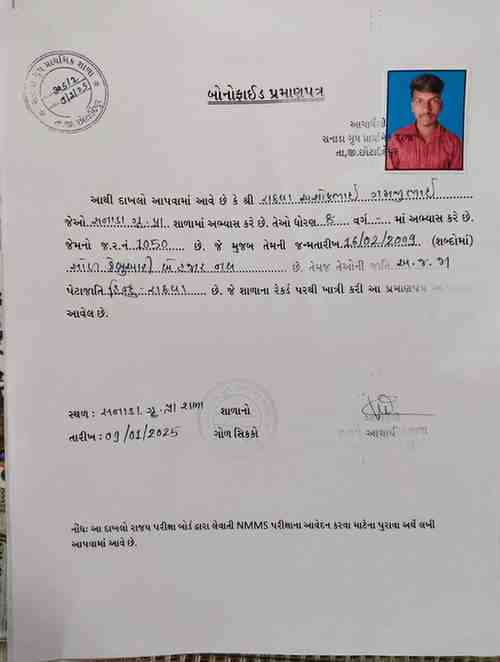 બોનોફાઈડ પ્રમાણપત્ર
આચાર્યશ્રી
સનાડા ગ્રુપ પ્રાથમિક શાળા
તા,જી.છોટાઉદેપુર
આથી દાખલો આપવામાં આવે છે કે શ્રી રાઠવા
જેઓ સનાડા ગ્રુ. પ્રા. શાળામાં અભ્યાસ કરે છે. તેઓ ધોરણ ૮ વર્ગ - માં અભ્યાસ કરે છે.
જેમનો જ.ર.નં 1050 છે. જે મુજબ તેમની જન્મતારીખ 16/02/2009 (શબ્દોમાં)
સોળ ફેબ્રુઆરી બે હજાર નવ છે. તેમજ તેઓની જાતિ અ.જ.જા
પેટાજાતિ હિન્દુ - રાઠવા છે. જે શાળાના રેકર્ડ પરથી ખાત્રી કરી આ પ્રમાણપત્ર
આવેલ છે.
સ્થળ : સનાડા ગ્રુ. પ્રા શાળા શાળાનો
તારીખ : 09/01/2025 ગોળ સિક્કો આચાર્ય
નોંધઃ આ દાખલો રાજ્ય પરીક્ષા બોર્ડ દ્વારા લેવાતી NMMS પરીક્ષાના આવેદન કરવા માટેના પુરાવા અર્થે લખી
આપવામાં આવે છે.